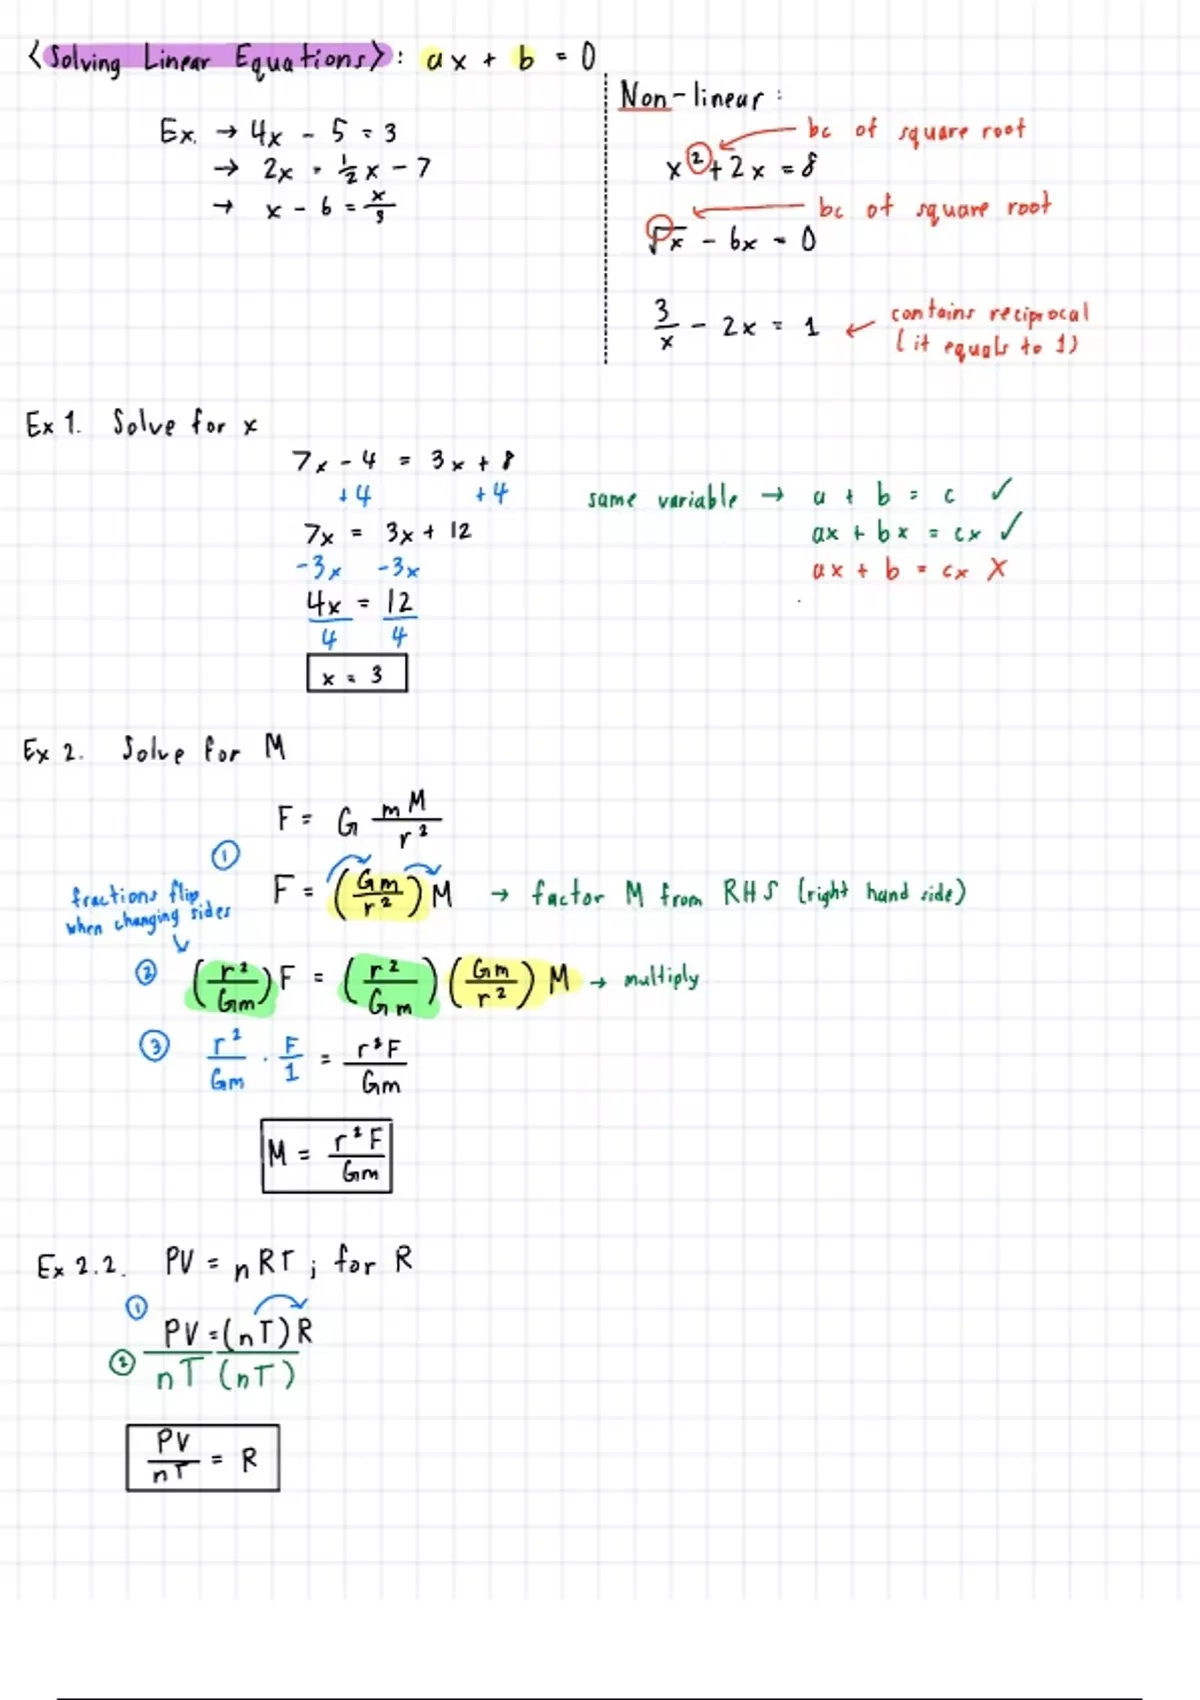 <Solving Linear Equations>: ax + b = 0
Ex. → 4x - 5 = 3
→ 2x = ½x - 7
→ x - 6 = x/3
Non-linear:
bc of square root
x² + 2x = 8
bc of square root
√x - 6x = 0
3/x - 2x = 1 ← contains reciprocal
(it equals to 1)
Ex 1. Solve for x
7x - 4 = 3x + 8
+4 +4
7x = 3x + 12
-3x -3x
4x = 12
4 4
x = 3
same variable → a + b = c ✓
ax + bx = cx ✓
ax + b = cx X
Ex 2. Solve for M
F = G mM/r²
① F = (Gm/r²) M → factor M from RHS (right hand side)
fractions flip
when changing sides
② (r²/Gm) F = (r²/Gm) (Gm/r²) M → multiply
③ r²/Gm · F/1 = r²F/Gm
M = r²F/Gm
Ex 2.2. PV = nRT ; for R
① PV = (nT) R
② nT (nT)
PV/nT = R